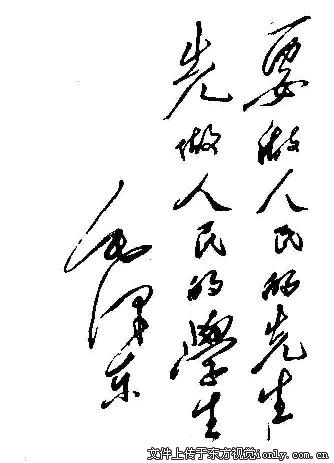 要做人民的先生
先做人民的學生
毛泽东
文件上传于东方视觉ionly.com.cn